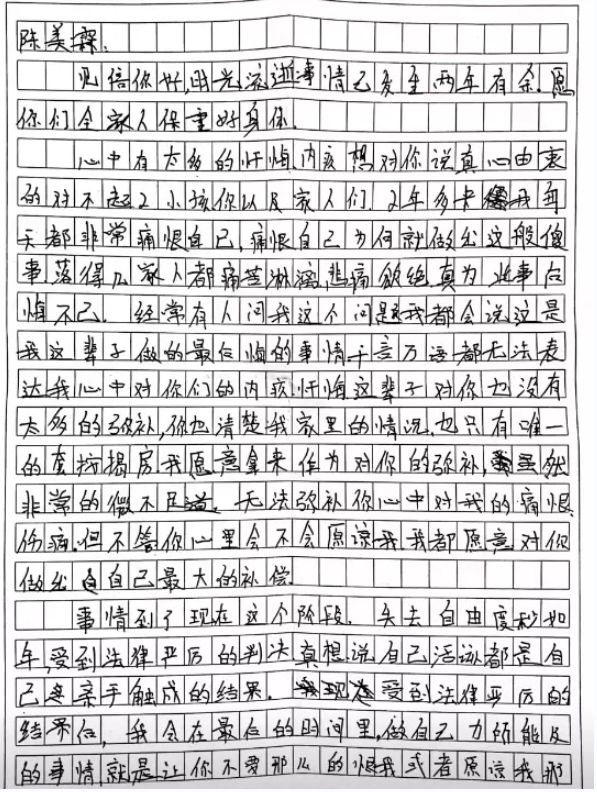 陈美霖.
见信你好,时光流逝事情已发生两年有余.愿
你们全家人保重好身体.
心中有太多的忏悔内疚想对你说真心由衷
的对不起2小孩你以及家人们.2年多来我每
天都非常痛恨自己,痛恨自己为何就做出这般傻
事.落得几家人都痛苦淋漓,悲痛欲绝.真为此事后
悔不已.经常有人问我这个问题我都会说这是
我这辈子做的最后悔的事情千言万语都无法表
达我心中对你们的内疚.忏悔这辈子对你也没有
太多的弥补,你也清楚我家里的情况.也只有唯一
的一套按揭房我愿意拿来作为对你的弥补,虽然
非常的微不足道.无法弥补你心中对我的痛恨
伤痛.但不管你心里会不会原谅我.我都愿意对你
做出自己最大的补偿
事情到了现在这个阶段.失去自由度秒如
年,受到法律严厉的判决真想说自己活该都是自
己亲手触成的结果.受到法律严厉的
结果后,我会在最后的时间里,做自己力所能及
的事情,就是让你不要那么的恨我或者原谅我那